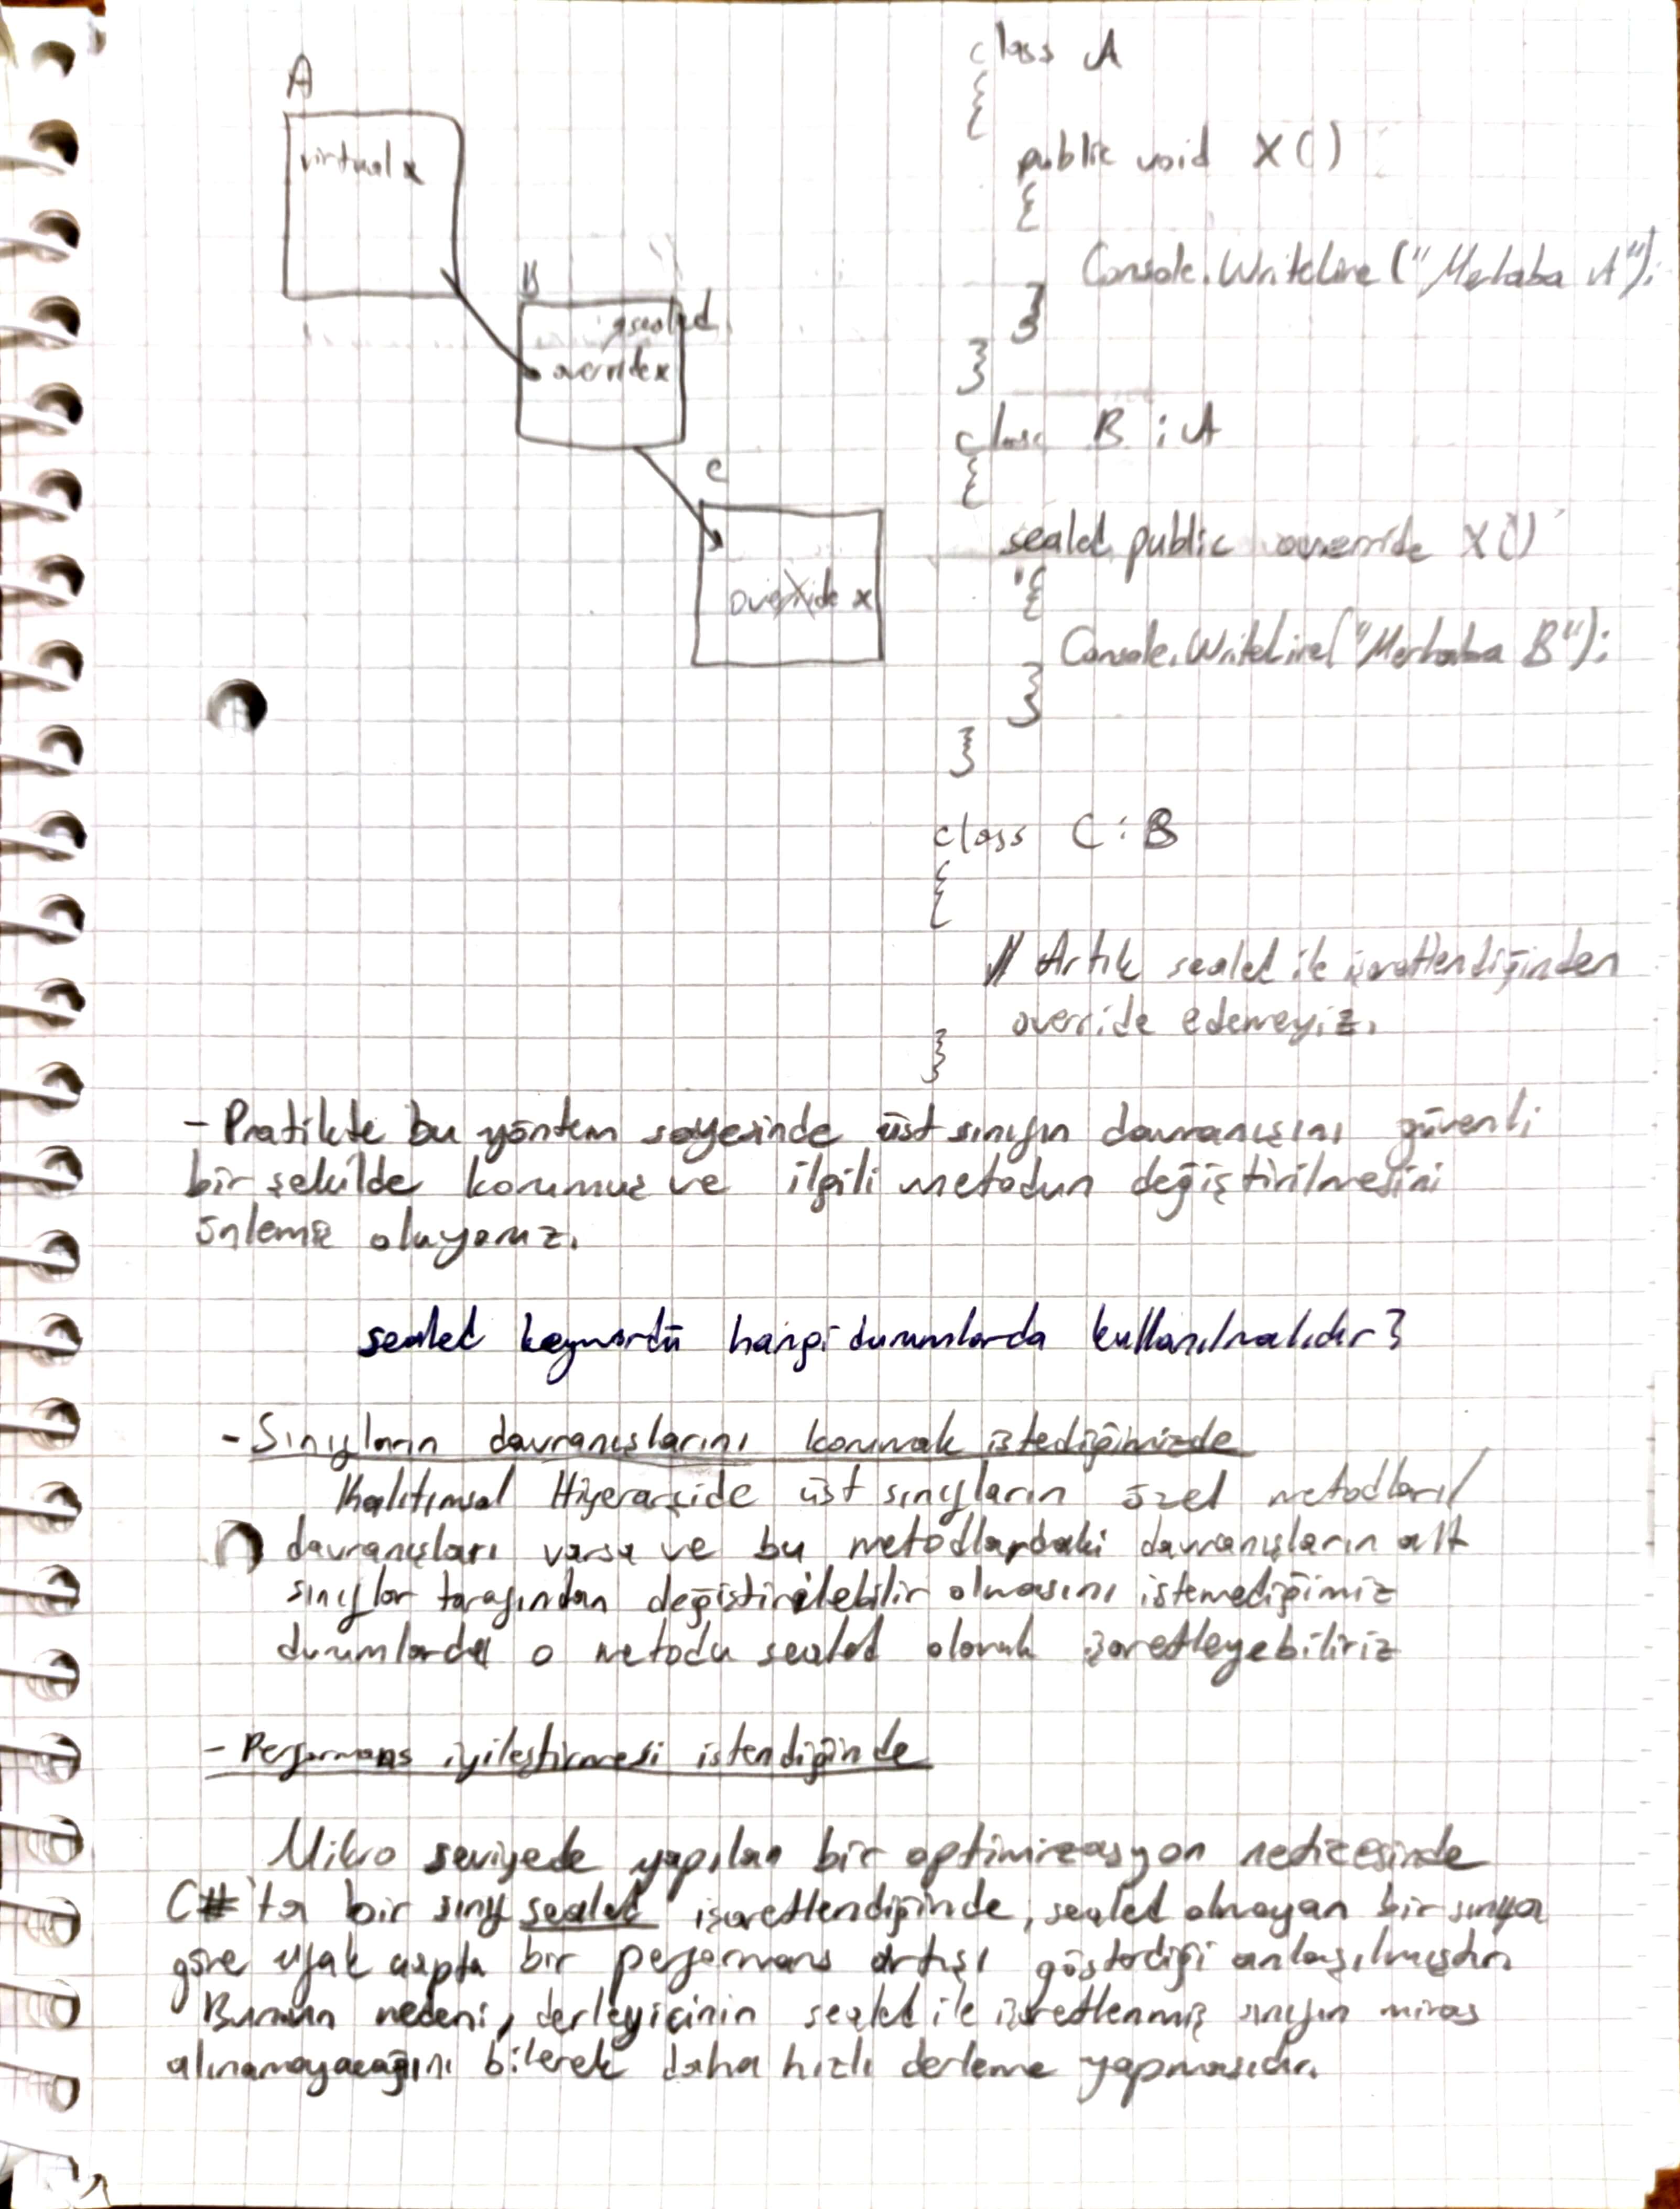 A
virtual x
B
sealed
override x
C
override x
class A
{
public void X()
{
Console.WriteLine("Merhaba A");
}
}
class B : A
{
sealed public override X()
{
Console.WriteLine("Merhaba B");
}
}
class C : B
{
// Artık sealed ile işaretlendiğinden
override edemeyiz.
}
- Pratikte bu yöntem sayesinde üst sınıfın davranışını güvenli
bir şekilde korumuş ve ilgili metodun değiştirilmesini
önlemiş oluyoruz.
sealed keywordü hangi durumlarda kullanılmalıdır?
- Sınıfların davranışlarını korumak istediğimizde
Kalıtımsal Hiyerarşide üst sınıfların özel metodları/
davranışları varsa ve bu metodlardaki davranışların alt
sınıflar tarafından değiştirilebilir olmasını istemediğimiz
durumlarda o metodu sealed olarak işaretleyebiliriz
- Performans iyileştirmesi istendiğinde
Mikro seviyede yapılan bir optimizasyon neticesinde
C#'ta bir sınıf sealed işaretlendiğinde, sealed olmayan bir sınıfa
göre ufak çapta bir performans artışı gösterdiği anlaşılmıştır.
Bunun nedeni, derleyicinin sealed ile işaretlenmiş sınıfın miras
alınamayacağını bilerek daha hızlı derleme yapmasıdır.